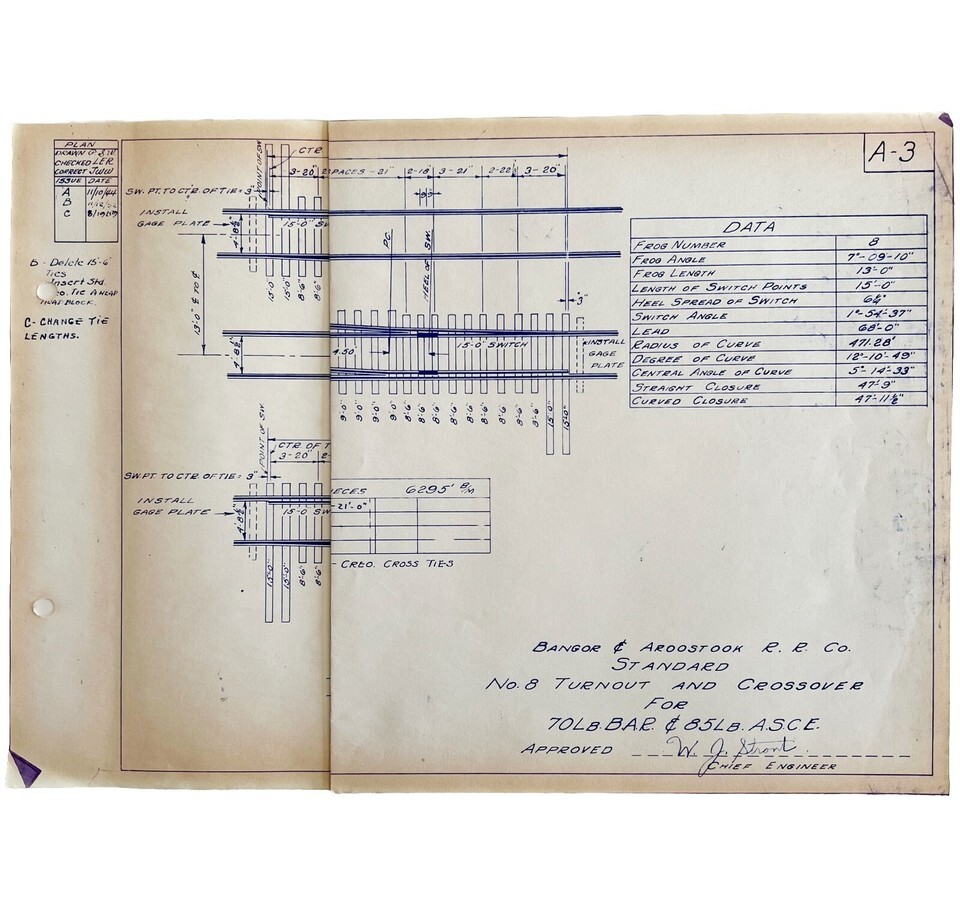 PLAN
DRAWN
CHECKED LER
CORRECT JWW
ISSUE DATE
A 11/10/44
B
C
B - Delete 15'-6"
Ties
Insert Std.
Tie Ahead
C - CHANGE TIE
LENGTHS.
A-3
POINT OF SW.
CTR.
3-20" SPACES-21" 2-18" 3-21" 2-22½" 3-20"
SW. PT. TO CTR. OF TIE = 3"
INSTALL
GAGE PLATE
4'-8½"
15'-0" SW
P.C.
HEEL OF SW.
15'-0" 15'-0" 8'-6" 8'-6"
13'-0" ¢ TO ¢
3"
4'-8½"
4.50'
15'-0" SWITCH
INSTALL
GAGE
PLATE
9'-0" 9'-0" 9'-0" 9'-0" 8'-6" 8'-6" 8'-6" 8'-6" 8'-6" 8'-6" 8'-6" 8'-6" 8'-6" 15'-0" 15'-0"
DATA
FROG NUMBER 8
FROG ANGLE 7°-09'-10"
FROG LENGTH 13'-0"
LENGTH OF SWITCH POINTS 15'-0"
HEEL SPREAD OF SWITCH 6¼"
SWITCH ANGLE 1°-54'-37"
LEAD 68'-0"
RADIUS OF CURVE 471.28'
DEGREE OF CURVE 12°-10'-49"
CENTRAL ANGLE OF CURVE 5°-14'-33"
STRAIGHT CLOSURE 47'-9"
CURVED CLOSURE 47'-11½"
POINT OF SW.
CTR. OF T
3-20" 2-
SW. PT. TO CTR. OF TIE = 3"
INSTALL
GAGE PLATE
4'-8½"
15'-0 SW
15'-0" 15'-0" 8'-6" 8'-6"
IECES 6295' B/M
-21'-0"
- CREO. CROSS TIES
BANGOR & AROOSTOOK R. R. CO.
STANDARD
NO. 8 TURNOUT AND CROSSOVER
FOR
70LB. B.A.R. & 85LB. A.S.C.E.
APPROVED W. J. Strout
CHIEF ENGINEER